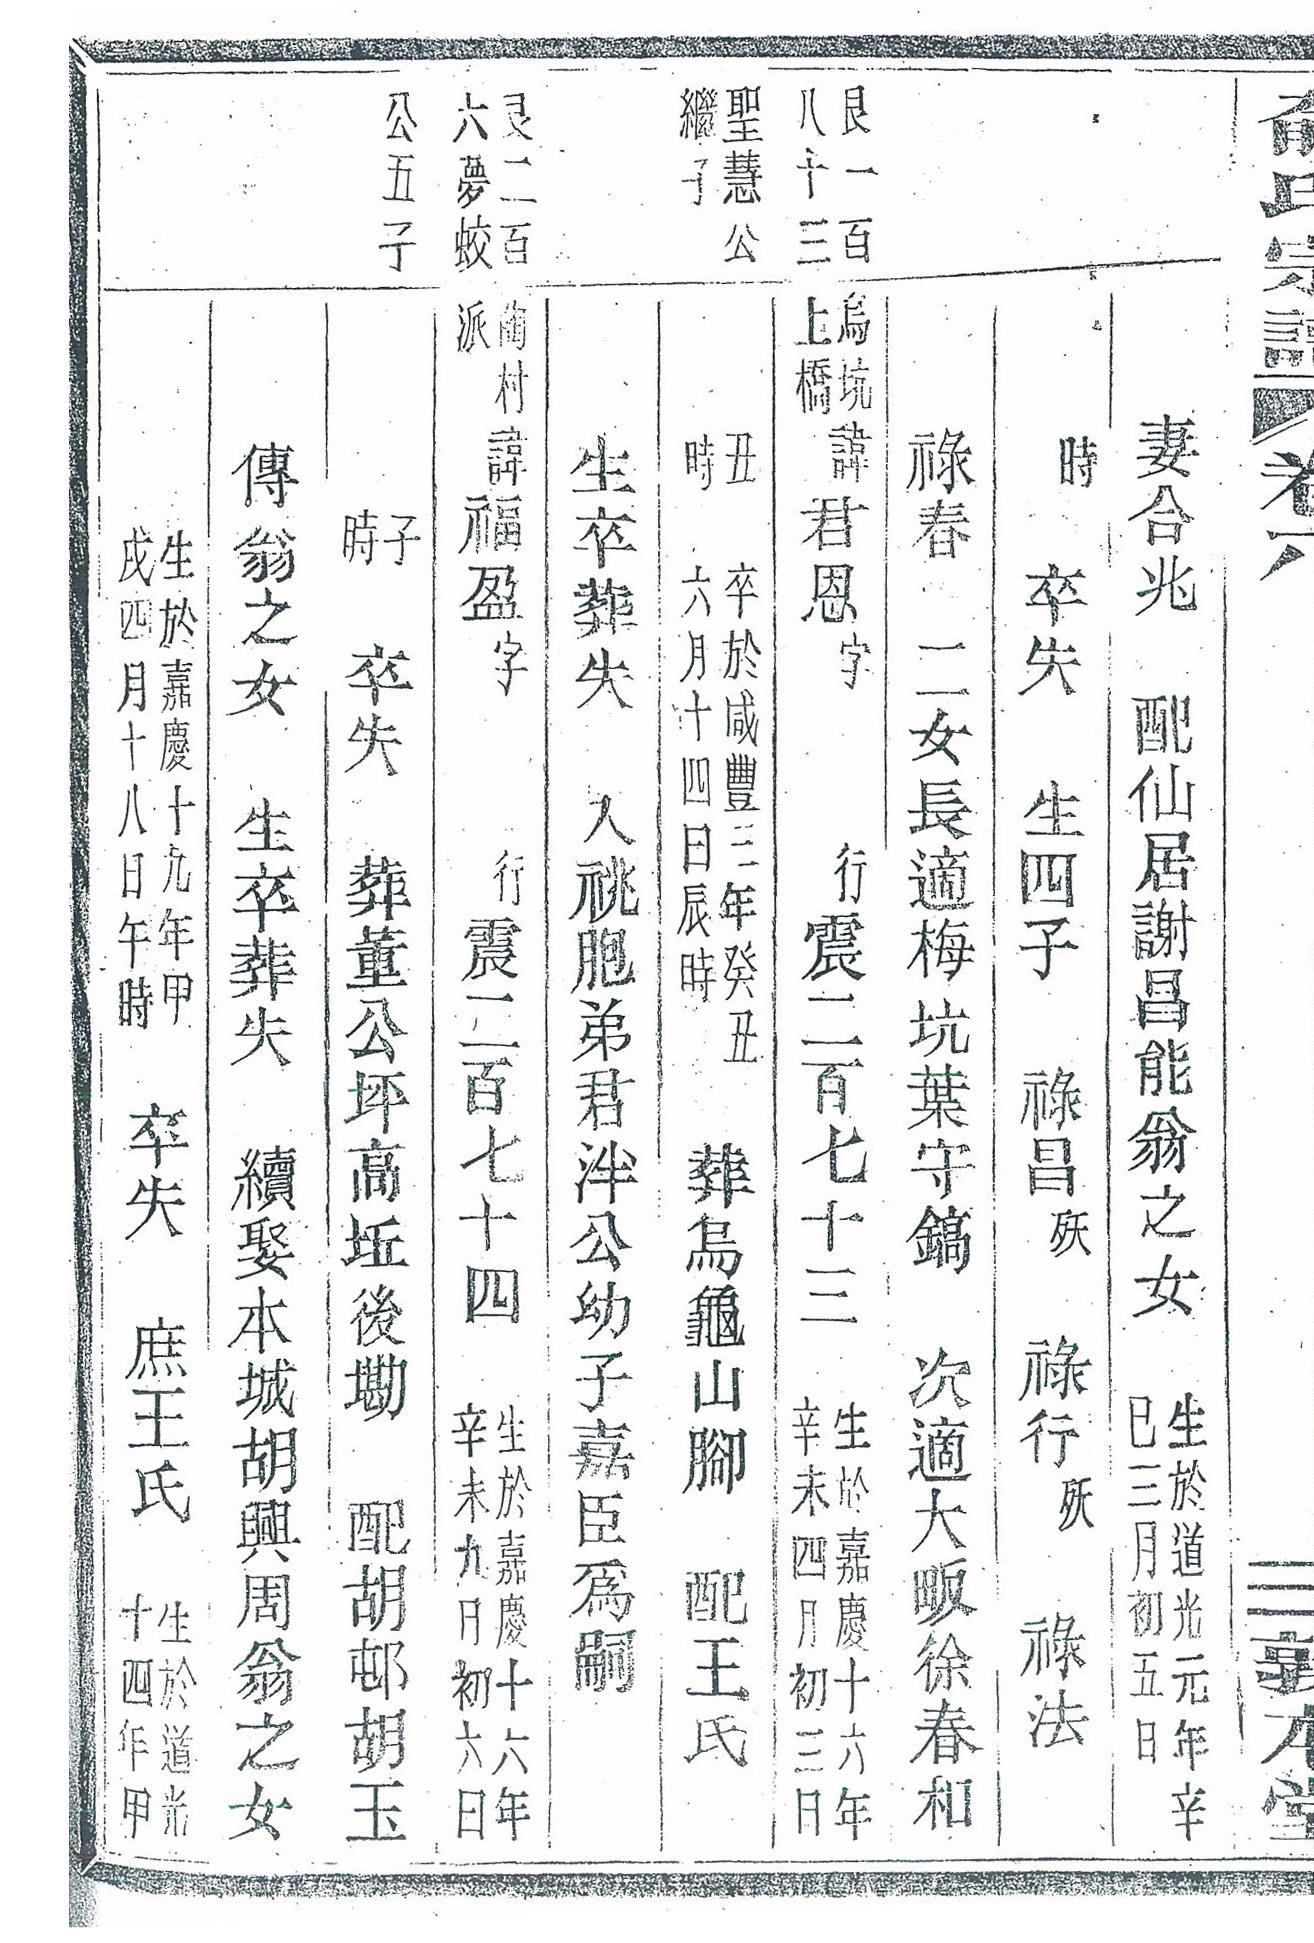 氏宗譜 卷六 敦本堂
妻合兆 配仙居謝昌能翁之女 生於道光元年辛
巳三月初五日
時 卒失 生四子 祿昌殀 祿行殀 祿法
祿春 二女長適梅坑葉守鎬 次適大畈徐春和
艮一百
八十三
烏坑
上橋
諱君恩字 行震二百七十三 生於嘉慶十六年
辛未四月初三日
聖慧公
繼子
丑
時 卒於咸豐三年癸丑
六月十四日辰時 葬烏龜山腳 配王氏
生卒葬失 入祧胞弟君泮公幼子嘉臣爲嗣
艮二百
六夢蛟
陶村
派
諱福盈字 行震二百七十四 生於嘉慶十六年
辛未九月初六日
公五子
子
時 卒失 葬董公坪高坵後墈 配胡邨胡玉
傳翁之女 生卒葬失 續娶本城胡興周翁之女
生於嘉慶十九年甲
戌四月十八日午時 卒失 庶王氏 生於道光
十四年甲